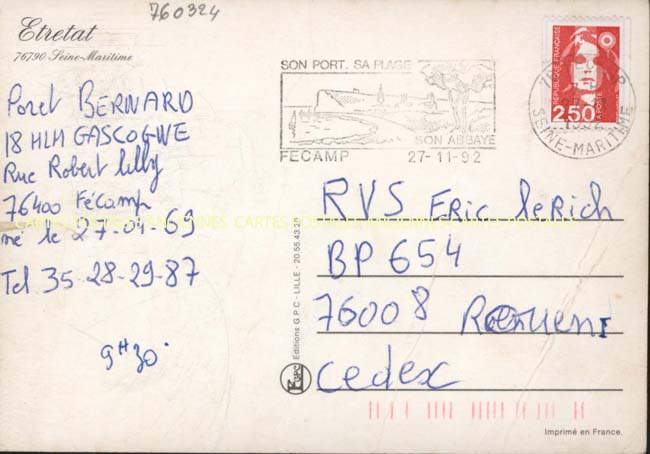 760324
Etretat
76790 Seine-Maritime
Poret BERNARD
18 HLM GASCOGNE
Rue Robert Lilly
76400 Fécamp
né le 27-04-69
Tel 35-28-29-87
9H30
SON PORT. SA PLAGE
SON ABBAYE
FECAMP 27-11-92
REPUBLIQUE FRANÇAISE
2,50
LA POSTE
SEINE-MARITIME
RVS Eric leRich
BP 654
76008
Cedex
Editions G.P.C - LILLE - 20.55.43.20
GPC
Imprimé en France.